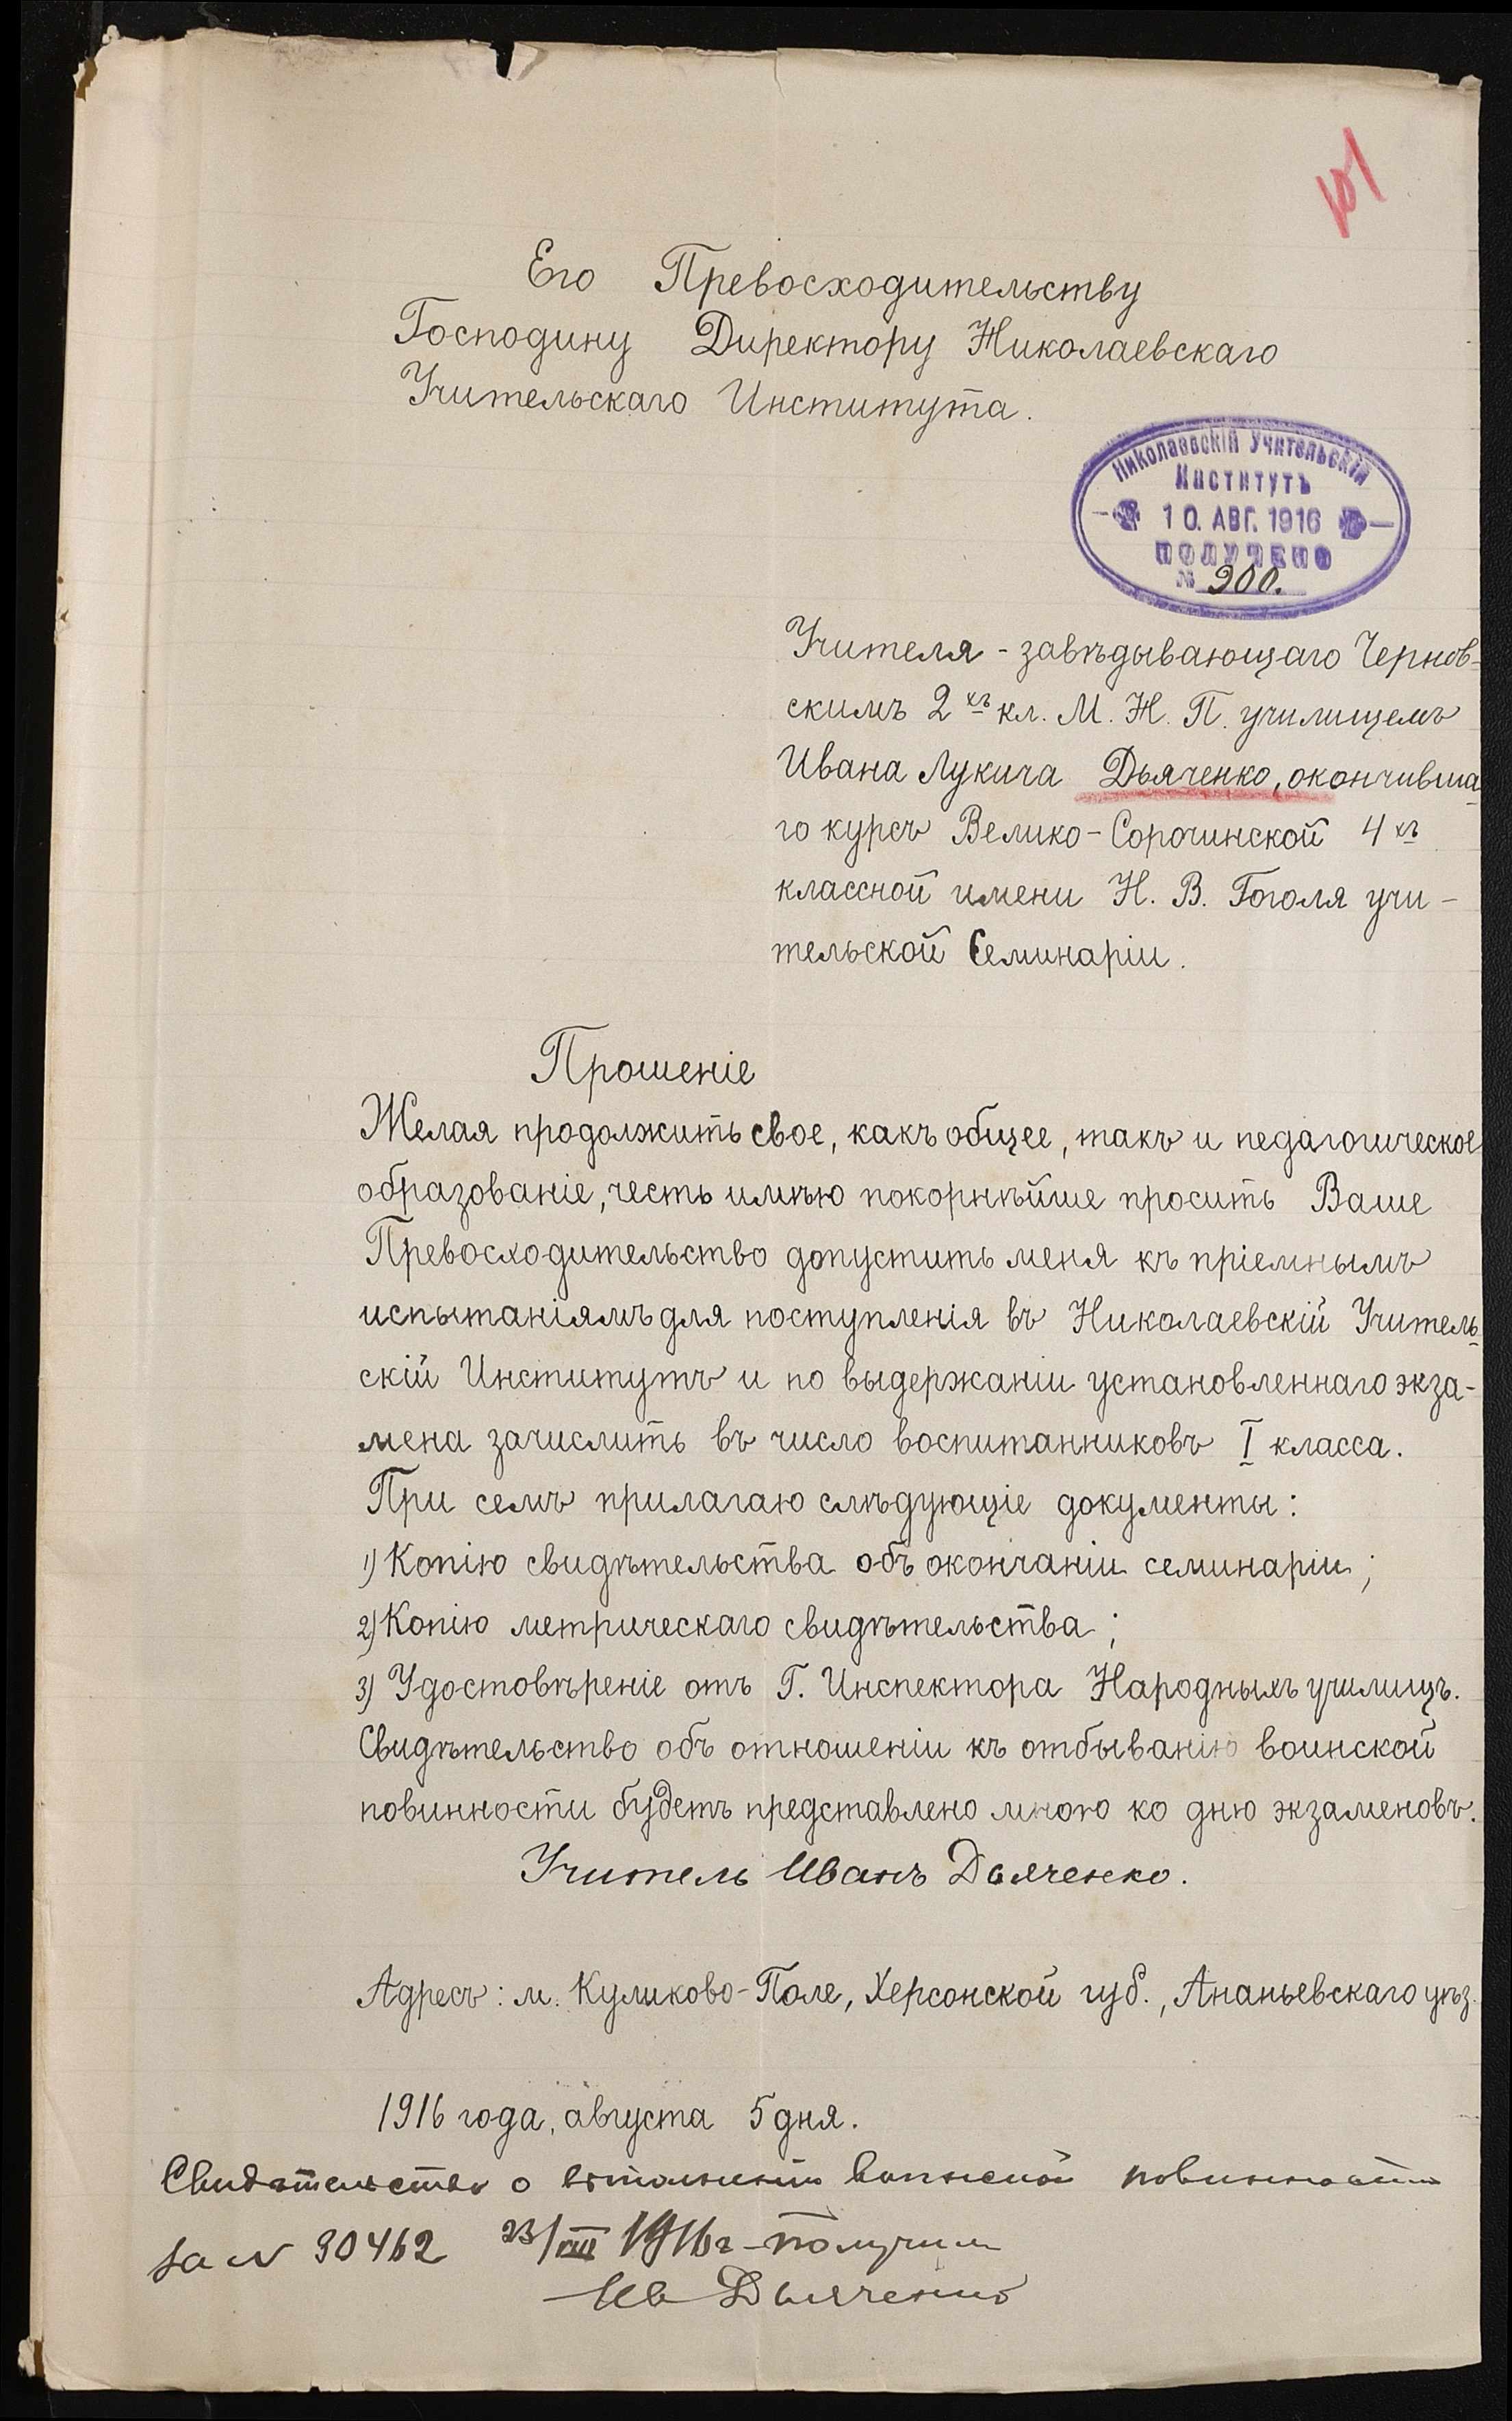 101
Его Превосходительству
Господину Директору Николаевскаго
Учительскаго Института.
Николаевскій Учительскій
Институтъ
10. АВГ. 1916
получено
№ 900.
Учителя - завѣдывающаго Чернов-
скимъ 2хъ кл. М. Н. П. училищемъ
Ивана Лукича Дьяченко, окончивша-
го курсъ Велико-Сорочинской 4хъ
классной имени Н. В. Гоголя учи-
тельской Семинаріи.
Прошеніе
Желая продолжить свое, какъ общее, такъ и педагогическое
образованіе, честь имѣю покорнѣйше просить Ваше
Превосходительство допустить меня къ пріемнымъ
испытаніямъ для поступленія въ Николаевскій Учитель-
скій Институтъ и по выдержаніи установленнаго экза-
мена зачислить въ число воспитанниковъ I класса.
При семъ прилагаю слѣдующіе документы:
1) Копію свидѣтельства объ окончаніи семинаріи;
2) Копію метрическаго свидѣтельства;
3) Удостовѣреніе отъ Г. Инспектора Народныхъ училищъ.
Свидѣтельство объ отношеніи къ отбыванію воинской
повинности будетъ представлено мною ко дню экзаменовъ.
Учитель Иванъ Дьяченко.
Адресъ: м. Куликово-Поле, Херсонской губ., Ананьевскаго уѣз.
1916 года, августа 5 дня.
Свидѣтельство о воинской повинности
за N 30462 23/VIII 1916 г получилъ
Ив Дьяченко